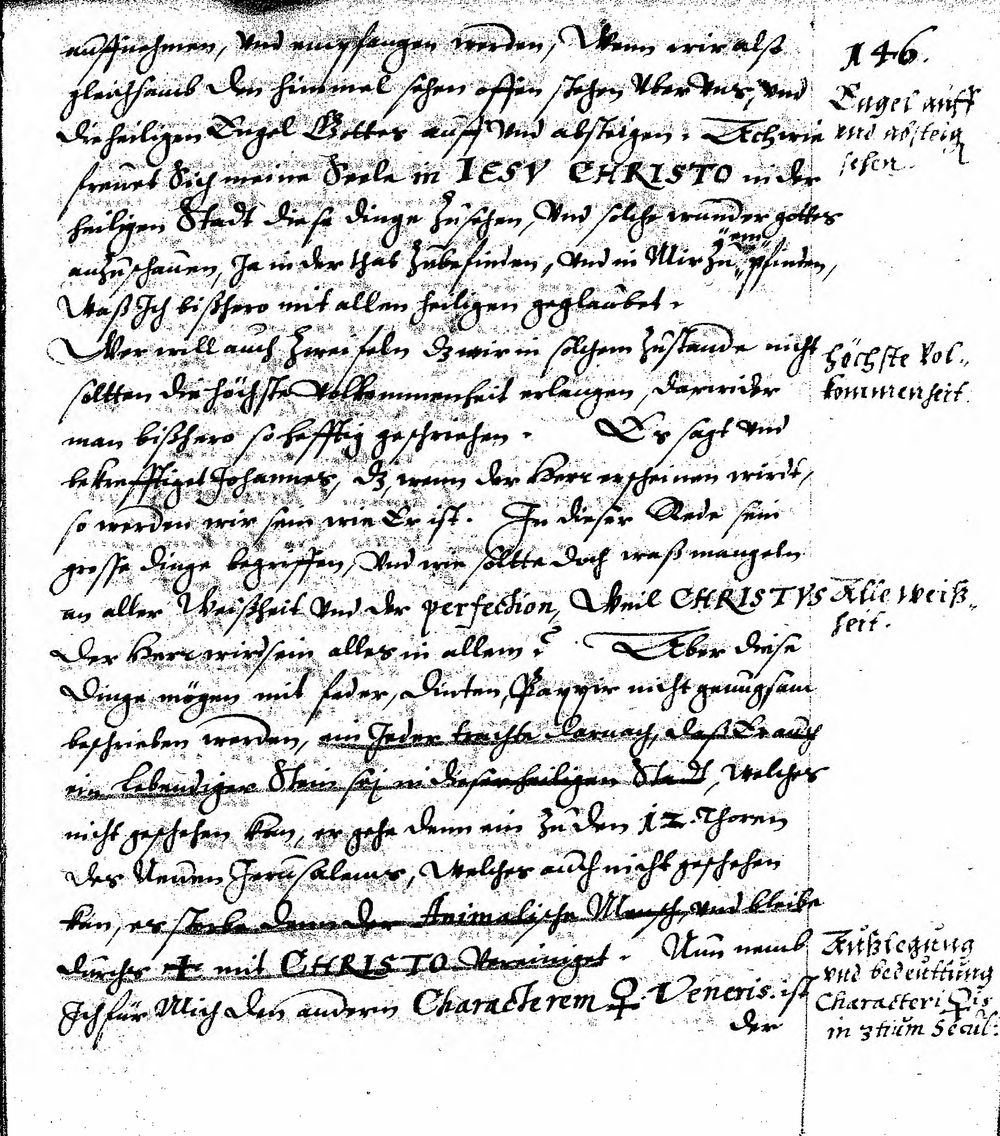 auffnehmen, und empfangen werden, Wenn wir alß
gleichsamb den himmel sehen offen stehen uber uns, und
die heiligen Engel Gottes auff und absteigen. Ach wie
freuet Sich meine Seele in IESV CHRISTO in der
heiligen Stadt diese dinge zusehen, Und solche wunder gottes
anzuschauen, Ja in der that zubefinden, und in Mir zu empfinden,
Waß Ich bißhero mit allen heiligen geglaubet.
Wer will auch zweifeln dz wir in solchem Zustande nicht
soltten die höchste Volkommenheit erlangen, darwider
man bißhero so hefftig geschriehen. Es sagt und
bekrefftiget Johannes, dz, wenn der Herr erscheinen wirdt,
so werden wir sein wie Er ist. In dieser Rede sein
grosse dinge begriffen, Und wie soltte doch waß mangeln
an aller Weißheit und der perfection, Weil CHRISTVS
der Herr wird sein alles in allem? Aber diese
Dinge mögen mit feder, Dinten, Pappir nicht genugsam
beschrieben werden, ein Jeder trachte darnach, daß Er auch
ein Lebendiger Stein sej in dieser heiligen Stadt, welches
nicht geschehen kan, er gehe denn ein zu den 12. Thoren
des Neuen Jerusalems, Welches auch nicht geschehen
kan, es sterbe denn der Animalische Mensch, und bleibe
durchs + mit CHRISTO Vereiniget. Nun nemb
Ich für Mich den andern Characterem ♀ Veneris. ist
der
146.
Engel auff
und absteig
sehen.
höchste Vol-
kommenheit.
Alle Weiß-
heit.
Außlegung
und bedeuttung
Characteri ♀is
in 3tium Secul: